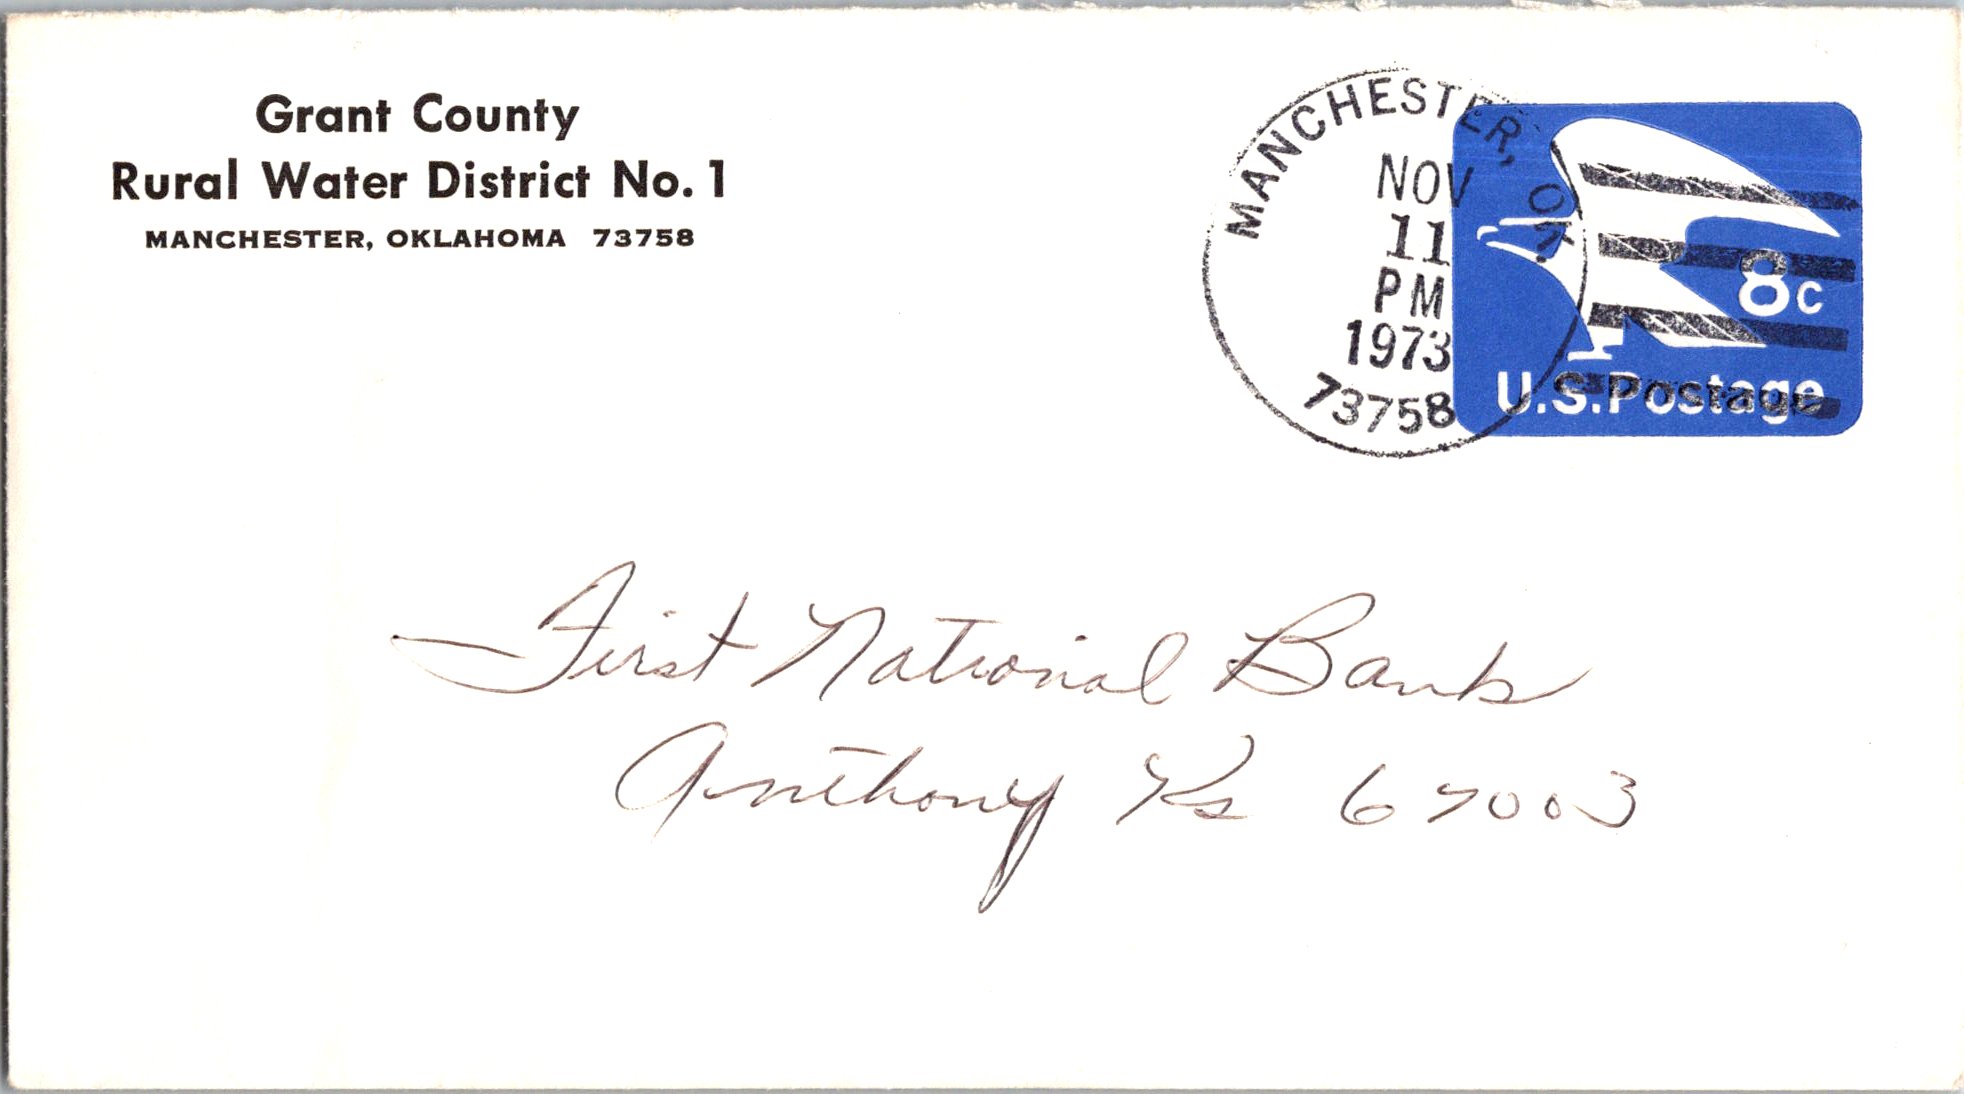 Grant County
Rural Water District No. 1
MANCHESTER, OKLAHOMA 73758
MANCHESTER, OK.
NOV
11
PM
1973
73758
8c
U.S. Postage
First National Bank
Anthony Ks 67003